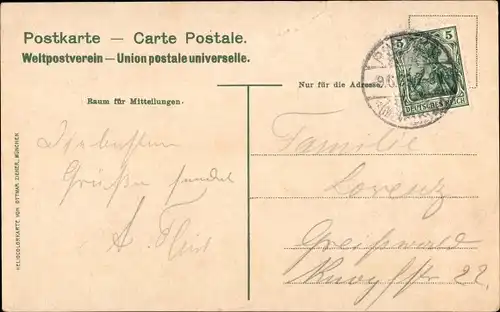 Postkarte — Carte Postale.
Weltpostverein — Union postale universelle.
Nur für die Adresse
Raum für Mitteilungen.
5 5
DEUTSCHES REICH
Grüße sendet
A.
Familie
Lorenz
Greifswald
22.
HELIOCOLORKARTE VON OTTMAR ZIEHER, MÜNCHEN